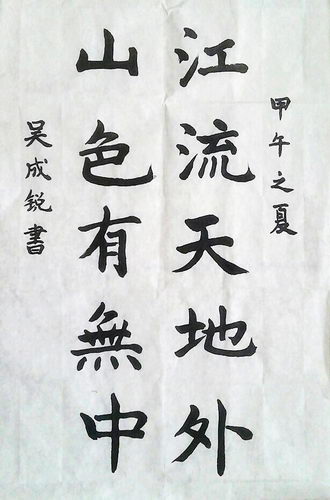 甲午之夏
江流天地外
山色有無中
吴成锐書